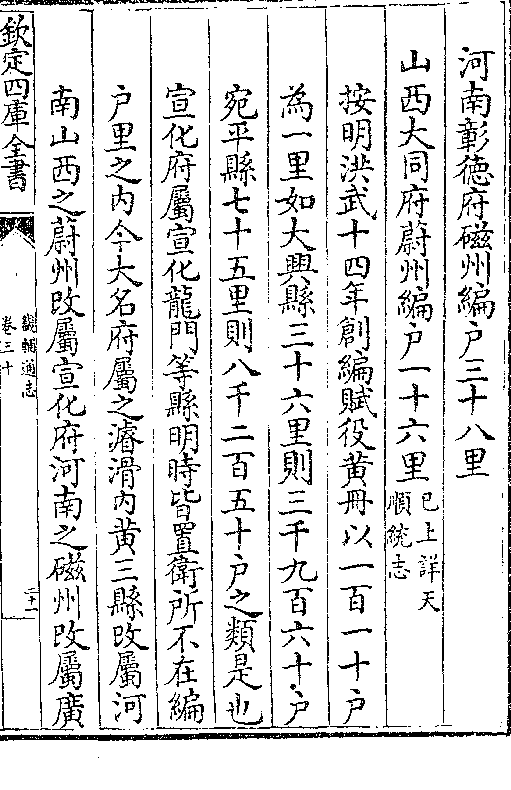 河南彰德府磁州編户三十八里
山西大同府蔚州編户一十六里已上詳天順統志
按明洪武十四年創編賦役黄冊以一百一十户
為一里如大興縣三十六里則三千九百六十户
宛平縣七十五里則八千二百五十户之類是也
宣化府屬宣化龍門等縣明時皆置衛所不在編
户里之内今大名府屬之濬滑内黄三縣改屬河
南山西之蔚州改屬宣化府河南之磁州改屬廣
欽定四庫全書
畿輔通志
卷三十
二十一